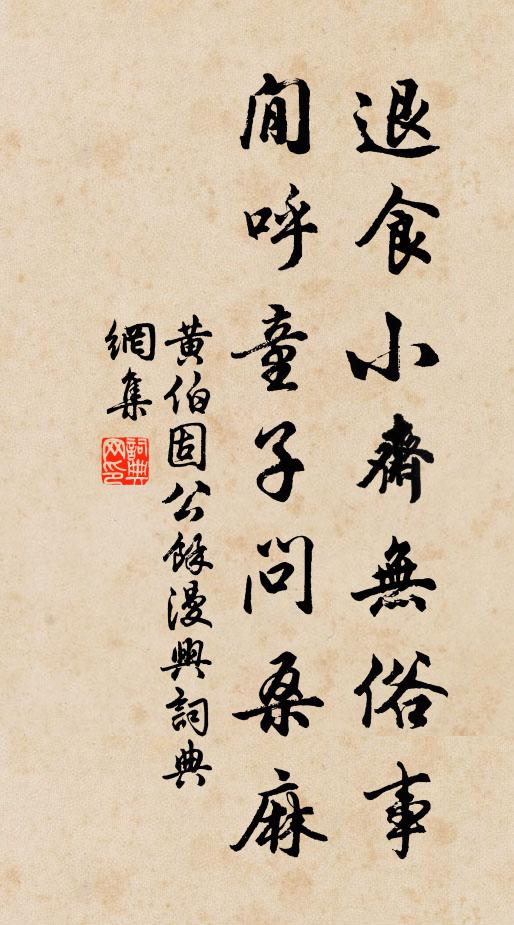 退食小齋無俗事
閒呼童子問桑麻
黄伯固公餘漫興詞典
網集
詞典網印